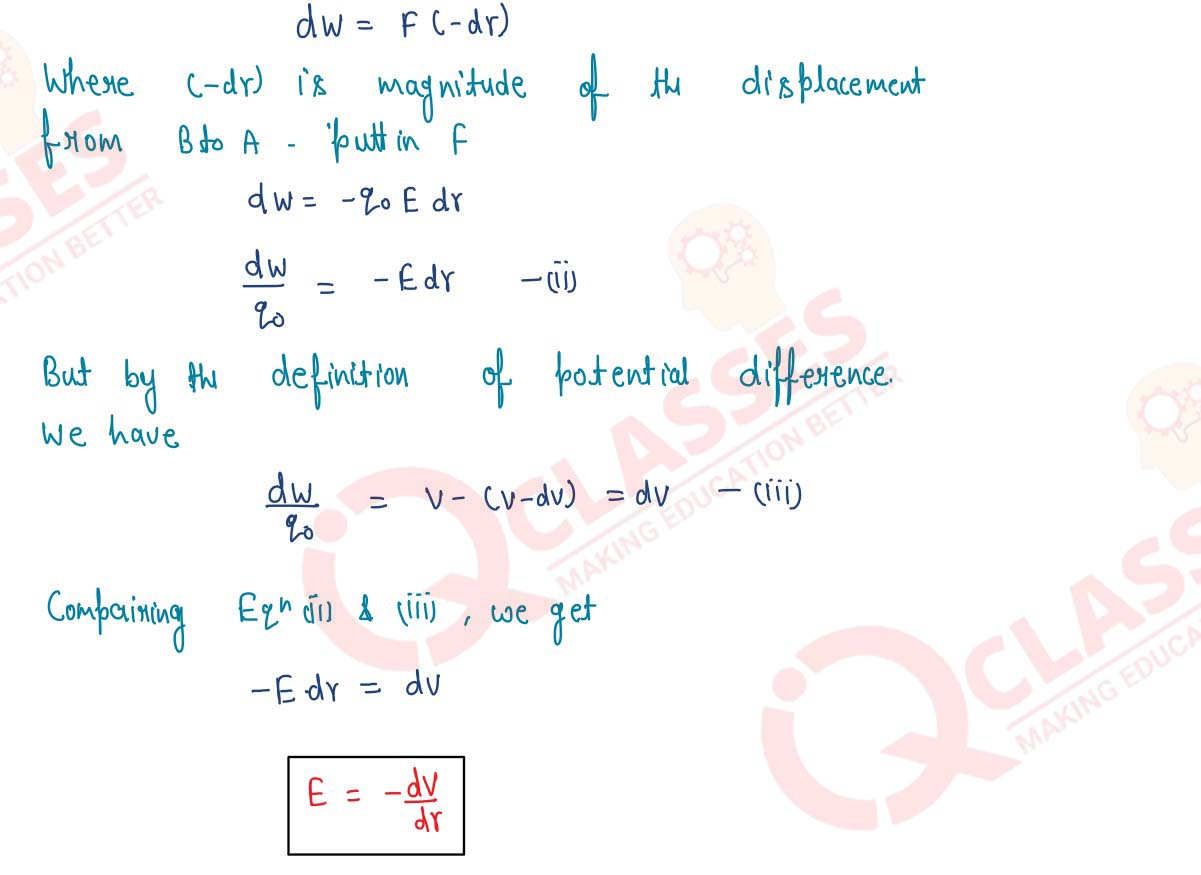 dw = F (-dr)
Where (-dr) is magnitude of the displacement
from B to A - putt in F
dw = -q₀ E dr
dw/q₀ = -E dr -(ii)
But by the definition of potential difference.
We have
dw/q₀ = v - (v-dv) = dv -(iii)
Compairing Eqn (ii) & (iii), we get
-E dr = dv
E = -dv/dr
SES
ATION BETTER
IQ CLASSES
MAKING EDUCATION BETTER
IQ CLASSES
MAKING EDUCA